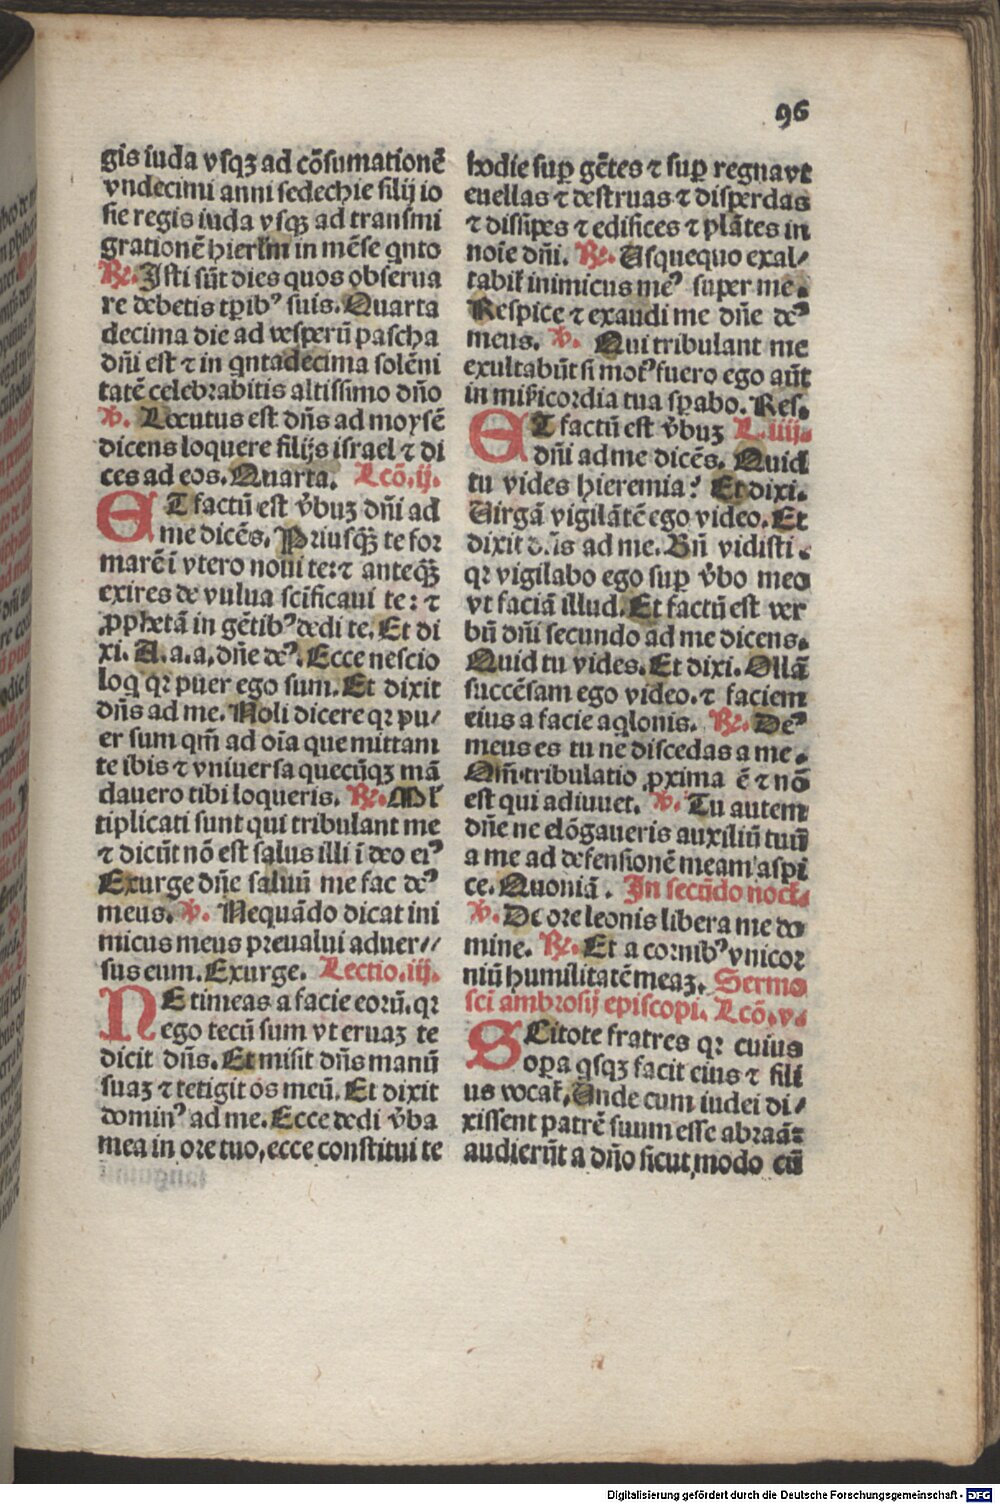 96
gis iuda vsqꝫ ad cõsumationẽ
vndecimi anni sedechie filij io
sie regis iuda vsqꝫ ad transmi
grationẽ hierĺm in mẽse qnto
℟. Isti sũt dies quos obserua
re debetis tꝑibꝰ suis. Quarta
decima die ad vesperũ pascha
dñi est ⁊ in qntadecima solẽni
tatẽ celebrabitis altissimo dño
℣. Locutus est dñs ad moysẽ
dicens loquere filijs israel ⁊ di
ces ad eos. Quarta. Lcõ. ij.
ET factũ est v̉buꝫ dñi ad
me dicẽs. Priusqꝫ̃ te for
marẽ ĩ vtero noui te: ⁊ anteqꝫ̃
exires de vulua scificaui te: ⁊
ꝓphetã in gẽtibꝰ dedi te. Et di
xi. A. a. a, dñe deꝰ. Ecce nescio
loq qꝛ puer ego sum. Et dixit
dñs ad me. Noli dicere qꝛ pu/
er sum qm̃ ad oĩa que mittam
te ibis ⁊ vniuersa quecũqꝫ mã
dauero tibi loqueris. ℟. Ml̓
tiplicati sunt qui tribulant me
⁊ dicũt nõ est salus illi ĩ deo eiꝰ
Exurge dñe saluũ me fac deꝰ
meus. ℣. Nequãdo dicat ini
micus meus preualui aduer//
sus eum. Exurge. Lectio. iij.
NE timeas a facie eorũ. qꝛ
ego tecũ sum vt eruaꝫ te
dicit dñs. Et misit dñs manũ
suaꝫ ⁊ tetigit os meũ. Et dixit
dominꝰ ad me. Ecce dedi v̉ba
mea in ore tuo, ecce constitui te
hodie suꝑ gẽtes ⁊ suꝑ regna vt
euellas ⁊ destruas ⁊ disperdas
⁊ dissipes ⁊ edifices ⁊ plãtes in
noĩe dñi. ℟. Usquequo exal/
tabit̃ inimicus meꝰ super me.
Respice ⁊ exaudi me dñe deꝰ
meus. ℣. Qui tribulant me
exultabũt si motꝰ fuero ego aũt
in mi̅icordia tua sꝑabo. Res.
ET factũ est v̉buꝫ L. iiij.
dñi ad me dicẽs. Quid
tu vides hieremia? Et dixi.
Uirgã vigilãtẽ ego video. Et
dixit dñs ad me. Bñ vidisti.
qꝛ vigilabo ego suꝑ v̉bo meo
vt faciã illud. Et factũ est ver
bũ dñi secundo ad me dicens.
Quid tu vides. Et dixi. Ollã
succẽsam ego video. ⁊ faciem
eius a facie aqlonis. ℟. Deꝰ
meus es tu ne discedas a me.
Qm̃ tribulatio ꝓxima ẽ ⁊ nõ
est qui adiuuet. ℣. Tu autem
dñe ne elõgaueris auxiliũ tuũ
a me ad defensionẽ meam aspi
ce. Quoniã. In secũdo noct̃.
℣. De ore leonis libera me do
mine. ℟. Et a cornibꝰ vnicor
niũ humilitatẽ meaꝫ. Sermo
sci̅ ambrosij episcopi. Lcõ. v.
SCitote fratres qꝛ cuius
oꝑa qsqꝫ facit eius ⁊ fili
us vocat̃. Unde cum iudei di/
xissent patrẽ suum esse abraã:
audierũt a dño sicut, modo cũ
Digitalisierung gefördert durch die Deutsche Forschungsgemeinschaft - DFG